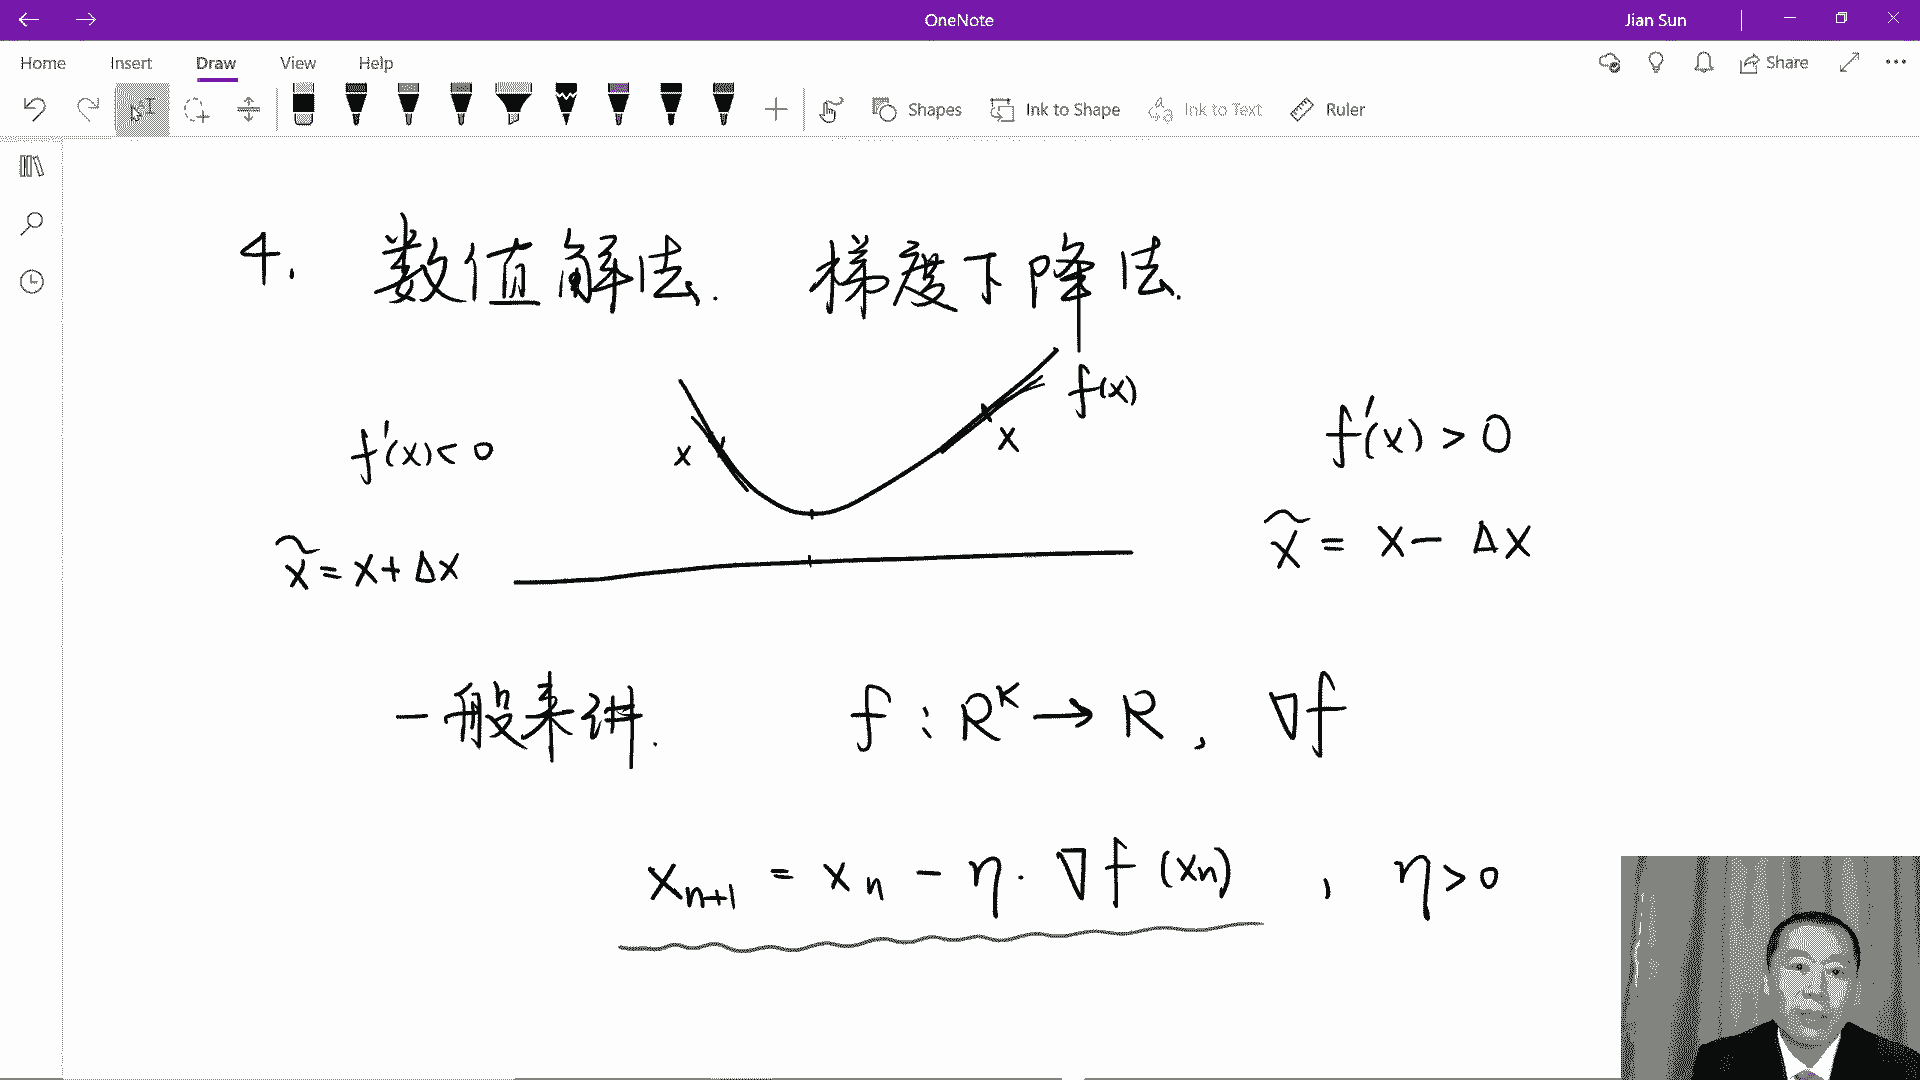 OneNote
Jian Sun
Home Insert Draw View Help
Share
Shapes Ink to Shape Ink to Text Ruler
4. 数值解法. 梯度下降法.
f(x)
f'(x)<0 x x f'(x)>0
x̃=x+Δx x̃=x-Δx
一般来讲. f:R^K→R, ∇f
x_{n+1}=x_n-η·∇f(x_n), η>0